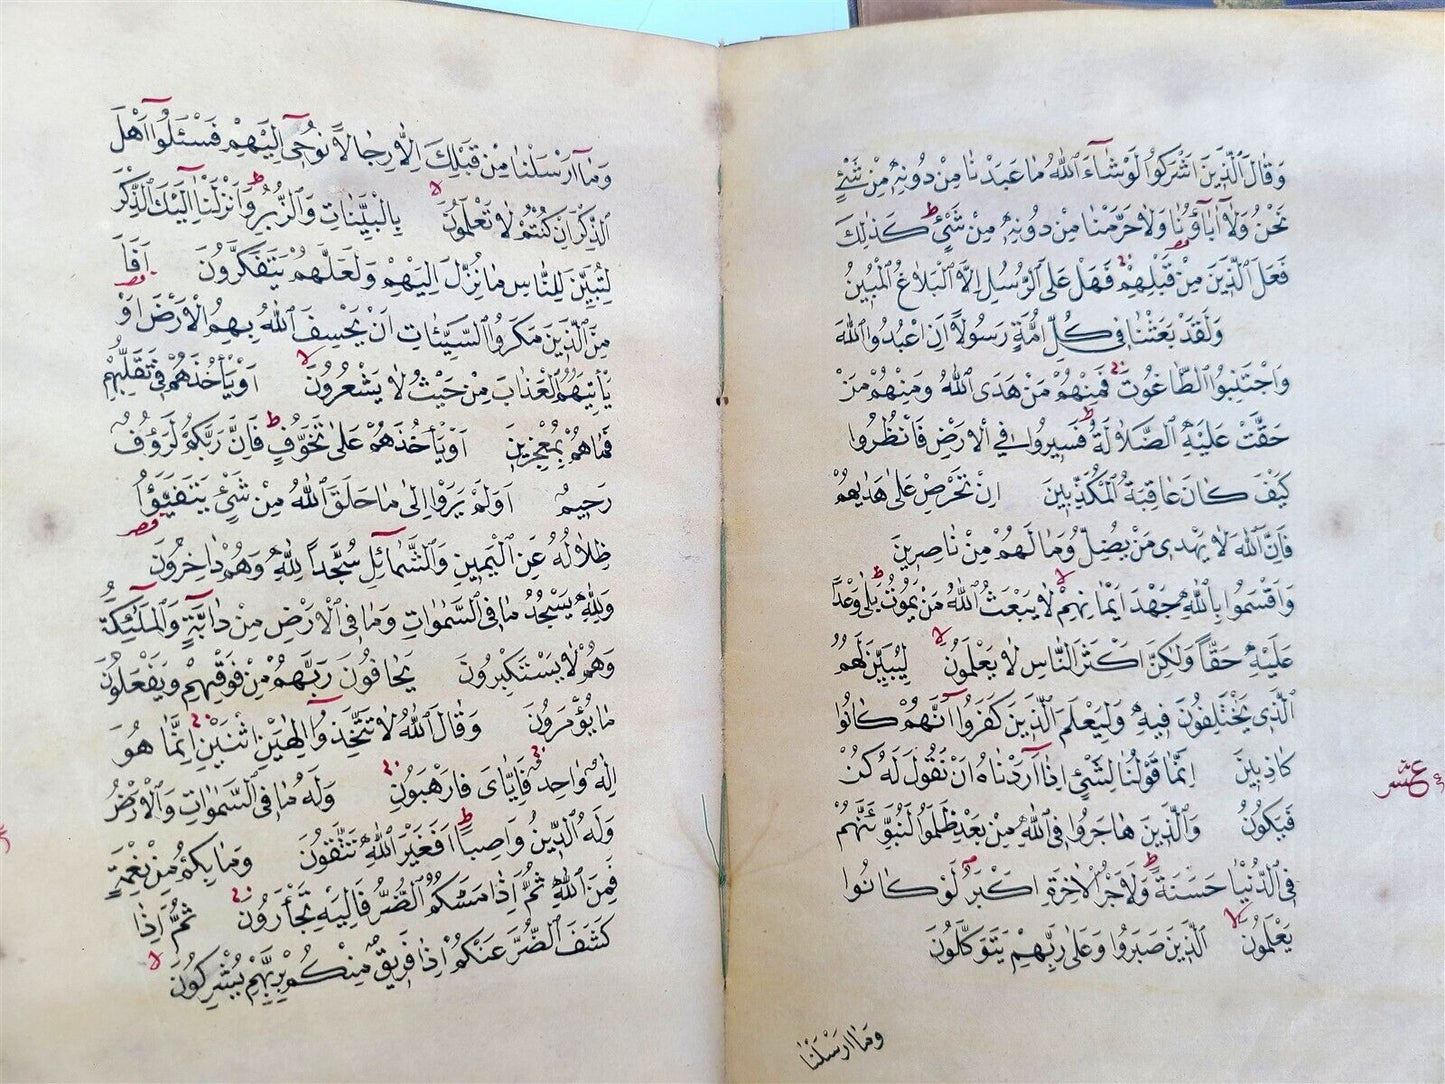 وَقَالَ الَّذِينَ اَشْرَكُوا لَوْ شَآءَ اللّٰهُ مَا عَبَدْنَا مِنْ دُونِهٖ مِنْ شَيْءٍ
نَحْنُ وَلَآ اٰبَآؤُنَا وَلَا حَرَّمْنَا مِنْ دُونِهٖ مِنْ شَيْءٍ ط كَذٰلِكَ
فَعَلَ الَّذِينَ مِنْ قَبْلِهِمْ فَهَلْ عَلَى الرُّسُلِ اِلَّا الْبَلَاغُ الْمُبِينُ
وَلَقَدْ بَعَثْنَا فِي كُلِّ اُمَّةٍ رَسُولًا اَنِ اعْبُدُوا اللّٰهَ
وَاجْتَنِبُوا الطَّاغُوتَ فَمِنْهُمْ مَنْ هَدَى اللّٰهُ وَمِنْهُمْ مَنْ
حَقَّتْ عَلَيْهِ الضَّلَالَةُ ط فَسِيرُوا فِي الْاَرْضِ فَانْظُرُوا
كَيْفَ كَانَ عَاقِبَةُ الْمُكَذِّبِينَ اِنْ تَحْرِصْ عَلٰى هُدٰيهُمْ
فَاِنَّ اللّٰهَ لَا يَهْدِى مَنْ يُضِلُّ وَمَا لَهُمْ مِنْ نَاصِرِينَ
وَاَقْسَمُوا بِاللّٰهِ جَهْدَ اَيْمَانِهِمْ لا لَا يَبْعَثُ اللّٰهُ مَنْ يَمُوتُ ط بَلٰى وَعْدًا
عَلَيْهِ حَقًّا وَلٰكِنَّ اَكْثَرَ النَّاسِ لَا يَعْلَمُونَ لا لِيُبَيِّنَ لَهُمُ
الَّذِى يَخْتَلِفُونَ فِيهِ وَلِيَعْلَمَ الَّذِينَ كَفَرُوا اَنَّهُمْ كَانُوا
كَاذِبِينَ اِنَّمَا قَوْلُنَا لِشَيْءٍ اِذَآ اَرَدْنَاهُ اَنْ نَقُولَ لَهُ كُنْ
فَيَكُونُ وَالَّذِينَ هَاجَرُوا فِى اللّٰهِ مِنْ بَعْدِ مَا ظُلِمُوا لَنُبَوِّئَنَّهُمْ
فِى الدُّنْيَا حَسَنَةً ط وَلَاَجْرُ الْاٰخِرَةِ اَكْبَرُ لَوْ كَانُوا
يَعْلَمُونَ لا الَّذِينَ صَبَرُوا وَعَلٰى رَبِّهِمْ يَتَوَكَّلُونَ
وَمَا اَرْسَلْنَا
عشر
وَمَآ اَرْسَلْنَا مِنْ قَبْلِكَ اِلَّا رِجَالًا نُوحِٓى اِلَيْهِمْ فَسْئَلُوٓا اَهْلَ
الذِّكْرِ اِنْ كُنْتُمْ لَا تَعْلَمُونَ لا بِالْبَيِّنَاتِ وَالزُّبُرِ ط وَاَنْزَلْنَآ اِلَيْكَ الذِّكْرَ
لِتُبَيِّنَ لِلنَّاسِ مَا نُزِّلَ اِلَيْهِمْ وَلَعَلَّهُمْ يَتَفَكَّرُونَ اَفَاَ
مِنَ الَّذِينَ مَكَرُوا السَّيِّئَاتِ اَنْ يَخْسِفَ اللّٰهُ بِهِمُ الْاَرْضَ اَوْ
يَأْتِيَهُمُ الْعَذَابُ مِنْ حَيْثُ لَا يَشْعُرُونَ لا اَوْ يَأْخُذَهُمْ فِى تَقَلُّبِهِمْ
فَمَا هُمْ بِمُعْجِزِينَ اَوْ يَأْخُذَهُمْ عَلٰى تَخَوُّفٍ ط فَاِنَّ رَبَّكُمْ لَرَؤُفٌ
رَحِيمٌ اَوَلَمْ يَرَوْا اِلٰى مَا خَلَقَ اللّٰهُ مِنْ شَيْءٍ يَتَفَيَّؤُا
ظِلَالُهُ عَنِ الْيَمِينِ وَالشَّمَآئِلِ سُجَّدًا لِلّٰهِ وَهُمْ دَاخِرُونَ
وَلِلّٰهِ يَسْجُدُ مَا فِى السَّمٰوَاتِ وَمَا فِى الْاَرْضِ مِنْ دَآبَّةٍ وَالْمَلٰٓئِكَةُ
وَهُمْ لَا يَسْتَكْبِرُونَ يَخَافُونَ رَبَّهُمْ مِنْ فَوْقِهِمْ وَيَفْعَلُونَ
مَا يُؤْمَرُونَ وَقَالَ اللّٰهُ لَا تَتَّخِذُوٓا اِلٰهَيْنِ اثْنَيْنِ اِنَّمَا هُوَ
اِلٰهٌ وَاحِدٌ فَاِيَّاىَ فَارْهَبُونِ وَلَهُ مَا فِى السَّمٰوَاتِ وَالْاَرْضِ
وَلَهُ الدِّينُ وَاصِبًا ط اَفَغَيْرَ اللّٰهِ تَتَّقُونَ وَمَا بِكُمْ مِنْ نِعْمَةٍ
فَمِنَ اللّٰهِ ثُمَّ اِذَا مَسَّكُمُ الضُّرُّ فَاِلَيْهِ تَجْأَرُونَ ثُمَّ اِذَا
كَشَفَ الضُّرَّ عَنْكُمْ اِذَا فَرِيقٌ مِنْكُمْ بِرَبِّهِمْ يُشْرِكُونَ لا